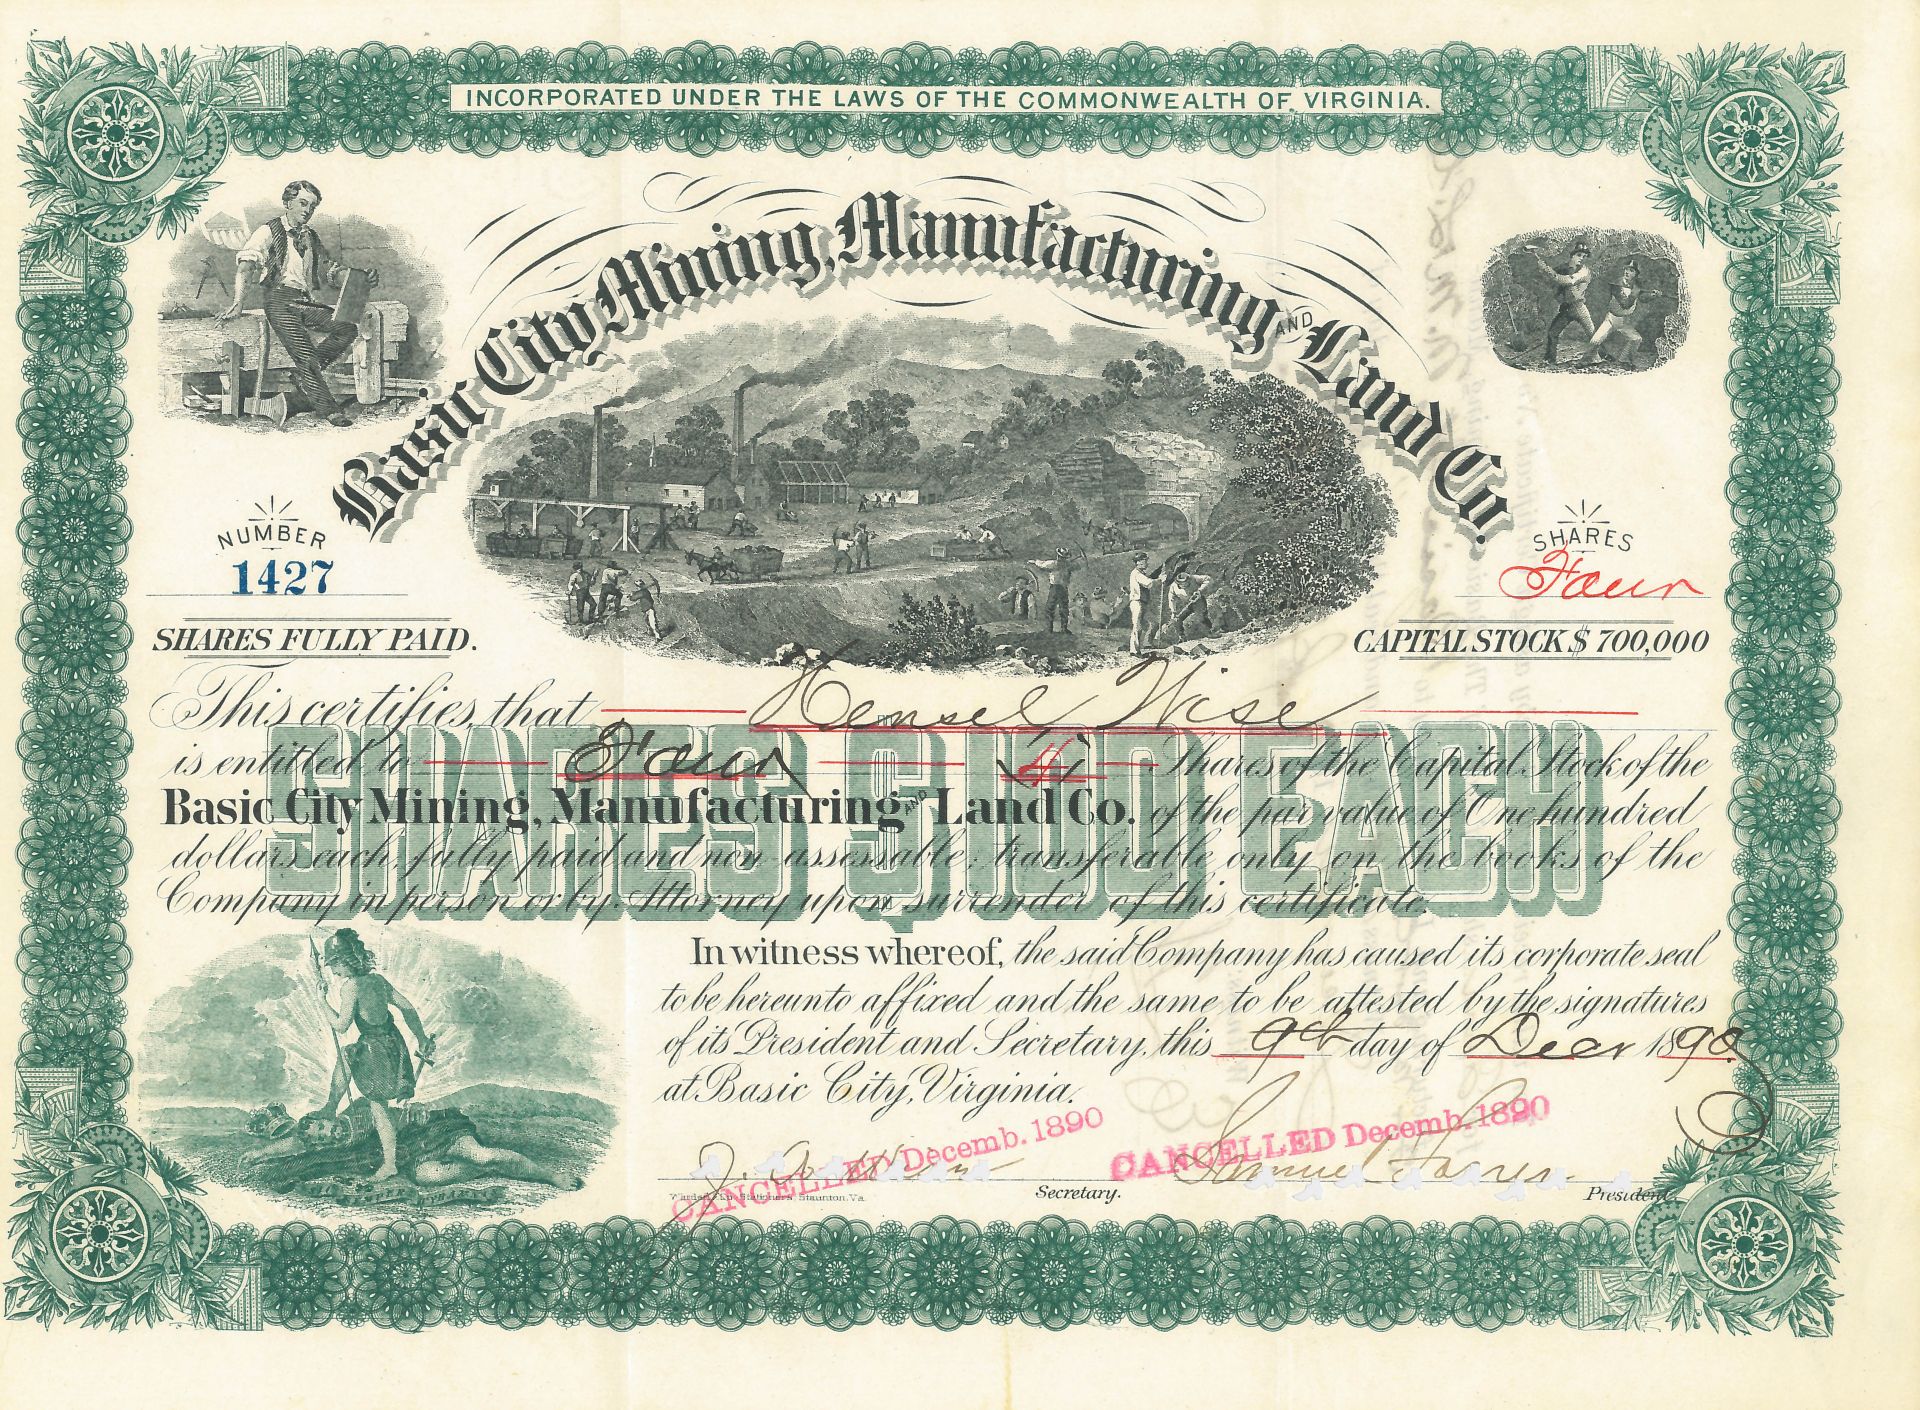 INCORPORATED UNDER THE LAWS OF THE COMMONWEALTH OF VIRGINIA.
Basic City Mining, Manufacturing AND Land Co.
NUMBER
1427
SHARES
Four
SHARES FULLY PAID.
CAPITAL STOCK $ 700,000
This certifies, that Hensel Wise
is entitled to Four 4 Shares of the Capital Stock of the
Basic City Mining, Manufacturing AND Land Co. of the par value of One hundred
dollars each, fully paid and non assessable; transferable only on the books of the
Company in person or by Attorney upon surrender of this certificate.
SHARES $100 EACH
In witness whereof, the said Company has caused its corporate seal
to be hereunto affixed and the same to be attested by the signatures
of its President and Secretary, this 9th day of Decr 1890
at Basic City, Virginia.
CANCELLED Decemb. 1890
CANCELLED Decemb. 1890
Samuel Forrer
Stationers, Staunton, Va.
Secretary.
President